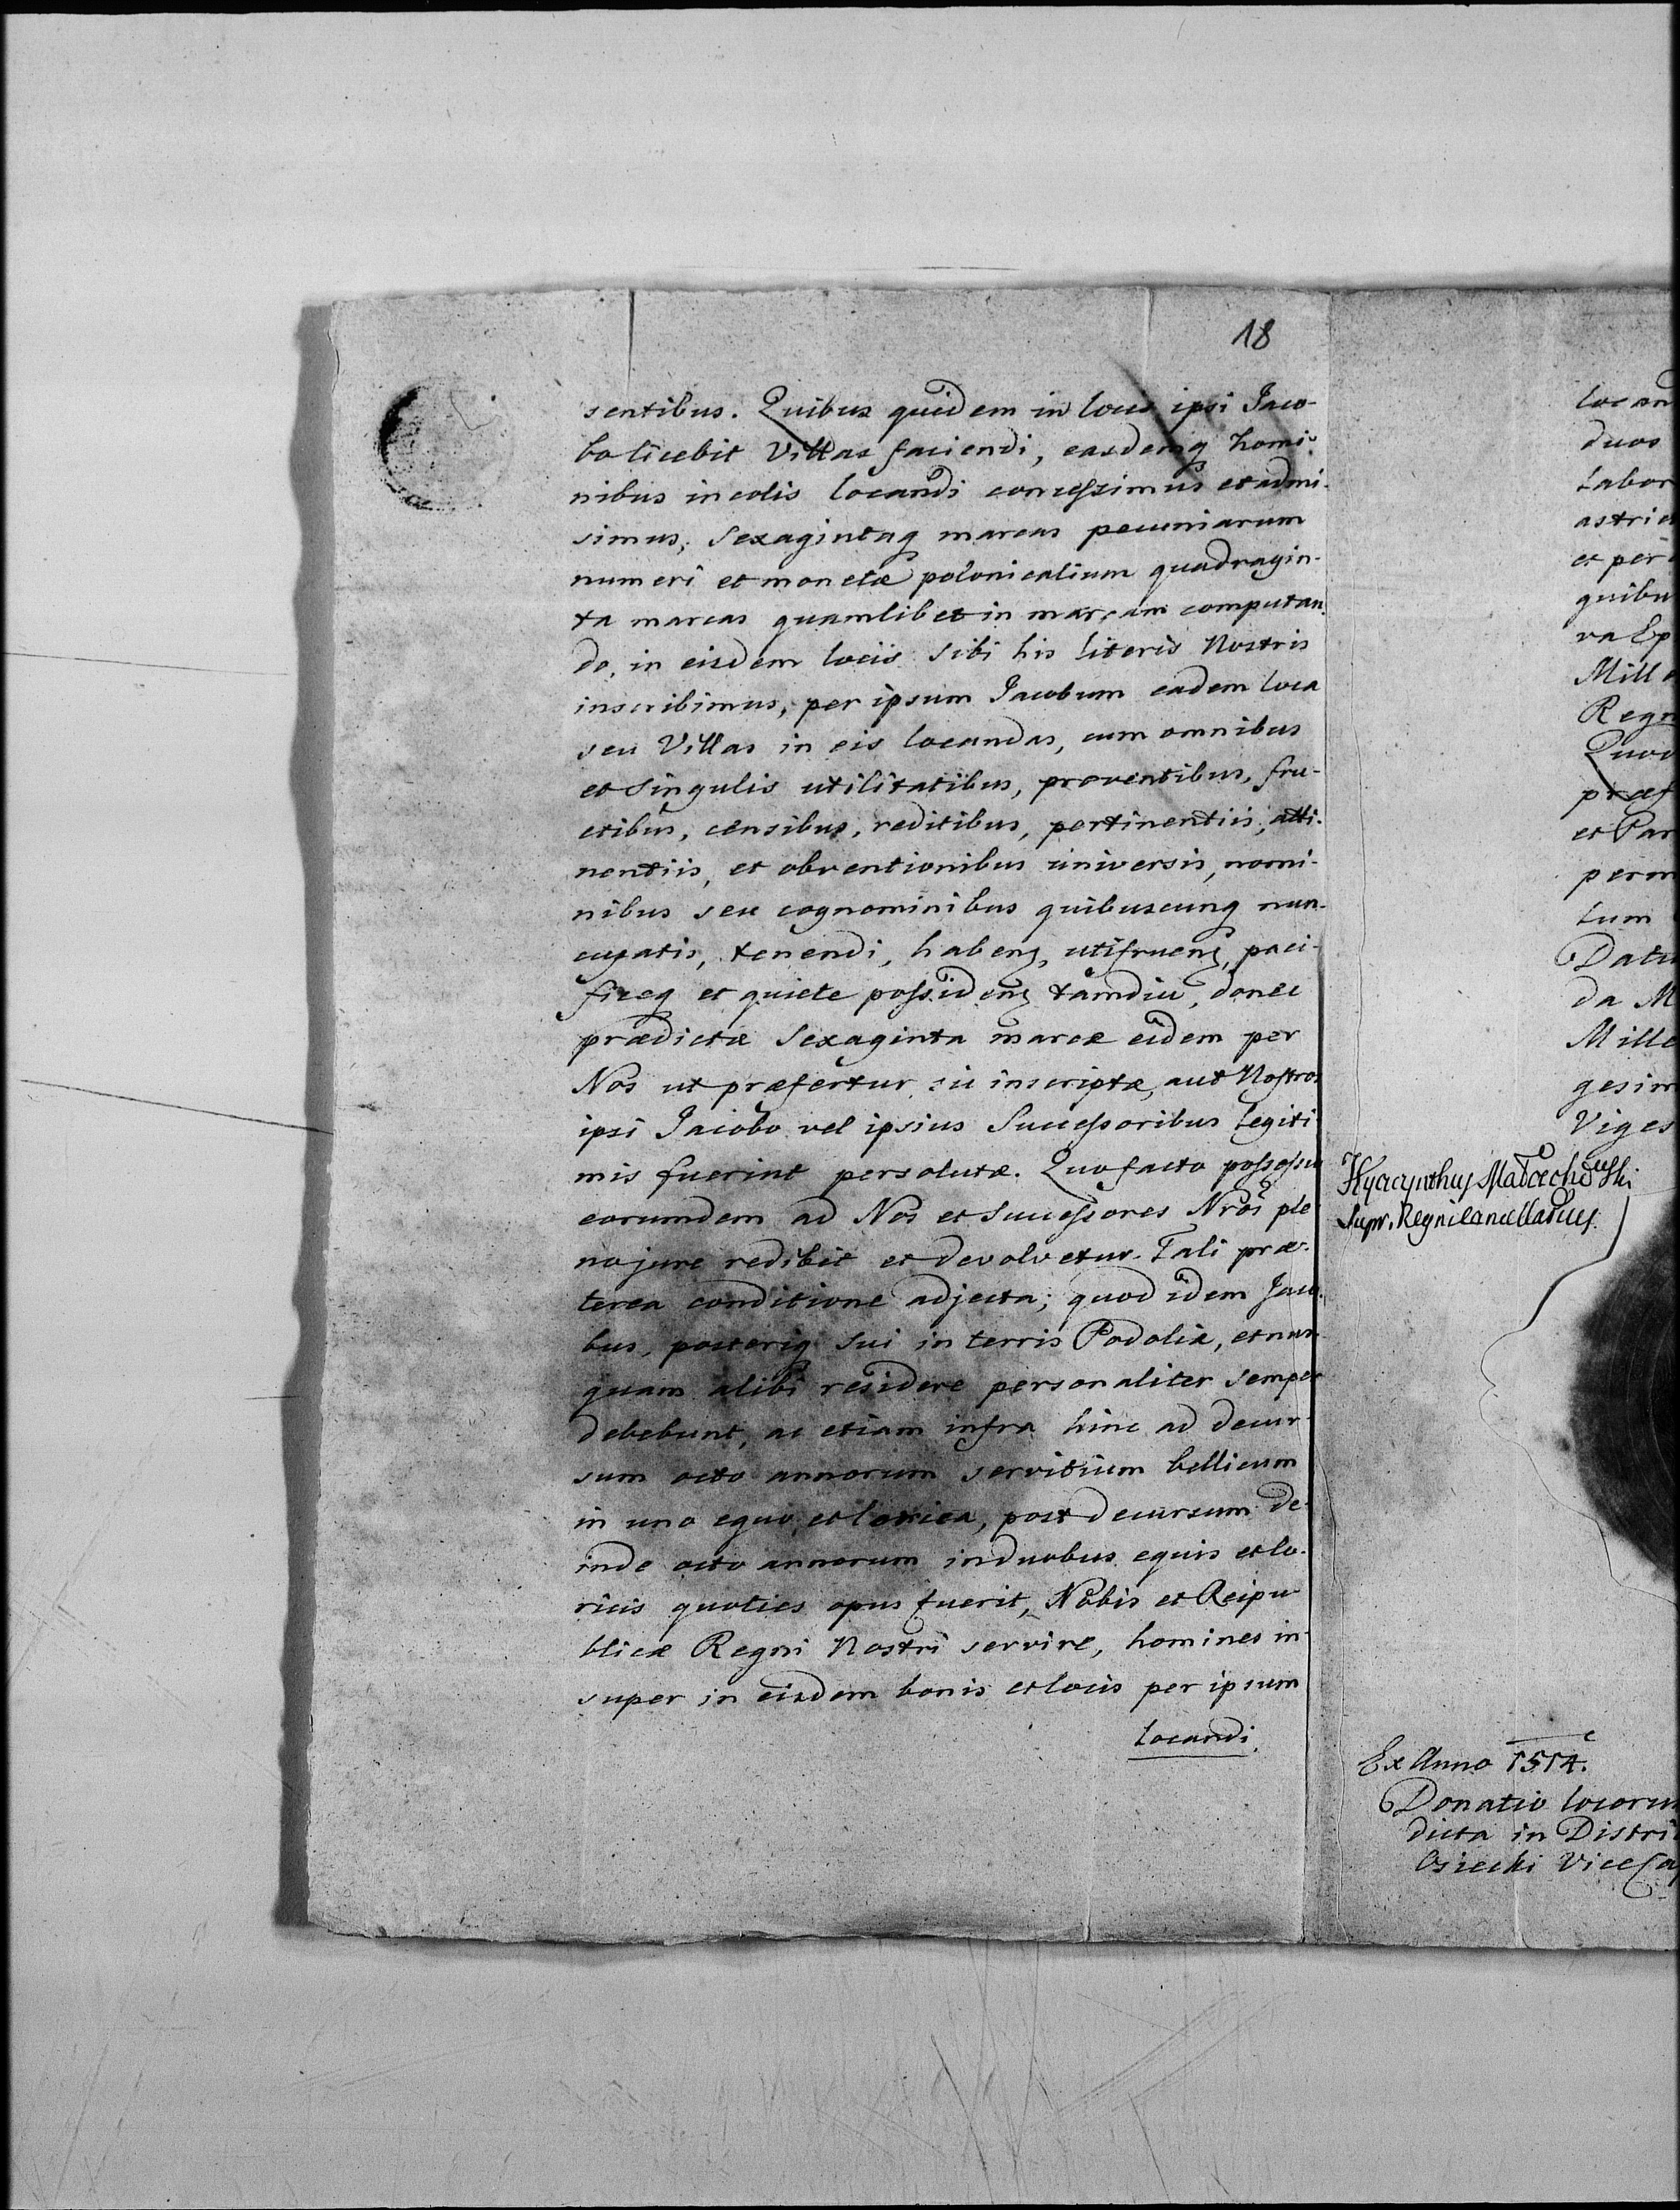 18
sentibus. Quibus quidem in locis ipsi Jaco-
bo licebit Villas faciendi, easdemq homi-
nibus incolis locandi concessimus et admi-
simus, Sexagintaq marcas pecuniarum
numeri et monetæ polonicalium quadragin-
ta marcas quamlibet in marcam computan-
do, in eisdem lociis sibi his literis Nostris
inscribimus, per ipsum Jacobum eadem loca
seu Villas in eis locandas, cum omnibus
et singulis utilitatibus, proventibus, fru-
ctibus, censibus, reditibus, pertinentiis, atti-
nentiis, et obventionibus universis, nomi-
nibus seu cognominibus quibuscunq nun-
cupatis, tenendi, habend, utifruend, paci-
ficeq et quiete possidend tamdiu, donec
prædictæ Sexaginta marcæ eidem per
Nos ut præfertur sic inscriptæ, aut Nostros
ipsi Jacobo vel ipsius Successoribus legiti-
mis fuerint persolutæ. Quo facto possessio
eorumdem ad Nos et Successores Nros ple-
no jure redibit et devolvetur. Tali præ-
terea conditione adjecta; quod idem Jaco-
bus, posteriq sui in terris Podoliæ, et nus-
quam alibi residere personaliter semper
debebunt, ac etiam infra hinc ad decur-
sum octo annorum servitium bellicum
in uno equo, et lorica, post decursum de-
inde octo annorum in duobus equis et lo-
ricis quoties opus fuerit, Nobis et Reipu-
blicæ Regni Nostri servire, homines in-
super in eisdem bonis et locis per ipsum
locandi
locan
duos
labor
astri
et per
quibu
va Ep
Mill
Regn
Quod
præf
et Par
perm
tum
Datu
da M
Mille
gesim
Viges
Hyacynthus Małachowski
Supr. Regni Cancellarius
Ex Anno 1514.
Donatio locoru
dicta in Distri
Osiecki ViceCa